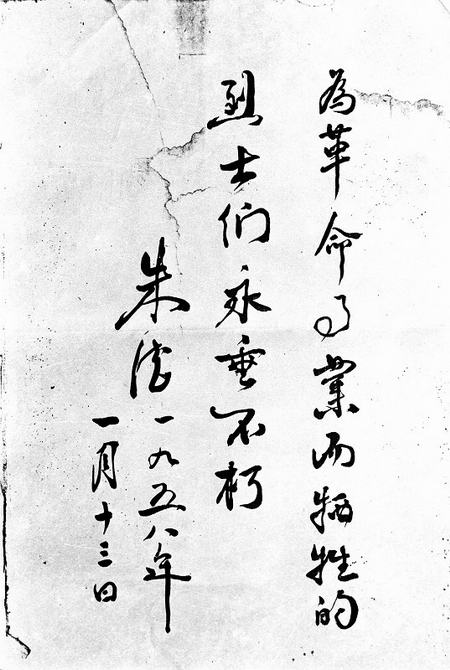 为革命事业而牺牲的
烈士们永垂不朽
朱德一九五八年
一月十三日